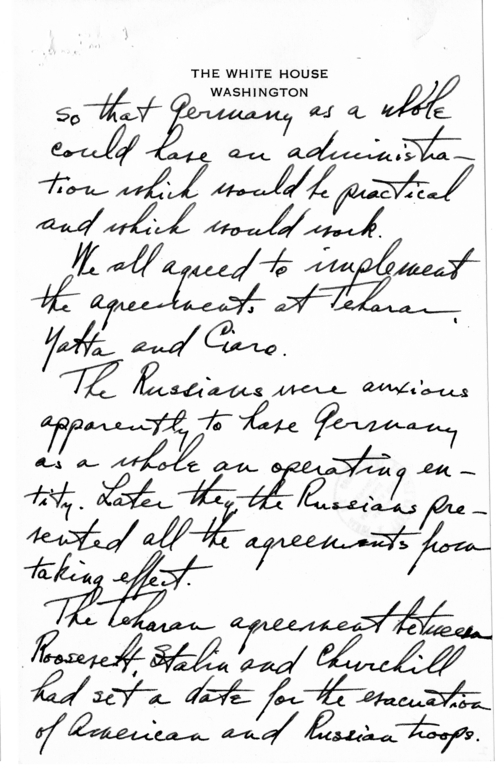 THE WHITE HOUSE
WASHINGTON
so that Germany as a whole
could have an administra-
tion which would be practical
and which would work.
We all agreed to implement
the agreements at Teharan,
Yatta and Ciaro.
The Russians were anxious
apparently to have Germany
as a whole an operating en-
tity. Later they, the Russians pre-
vented all the agreements from
taking effect.
The Teharan agreement between
Roosevelt, Stalin and Churchill
had set a date for the evacuation
of American and Russian troops.